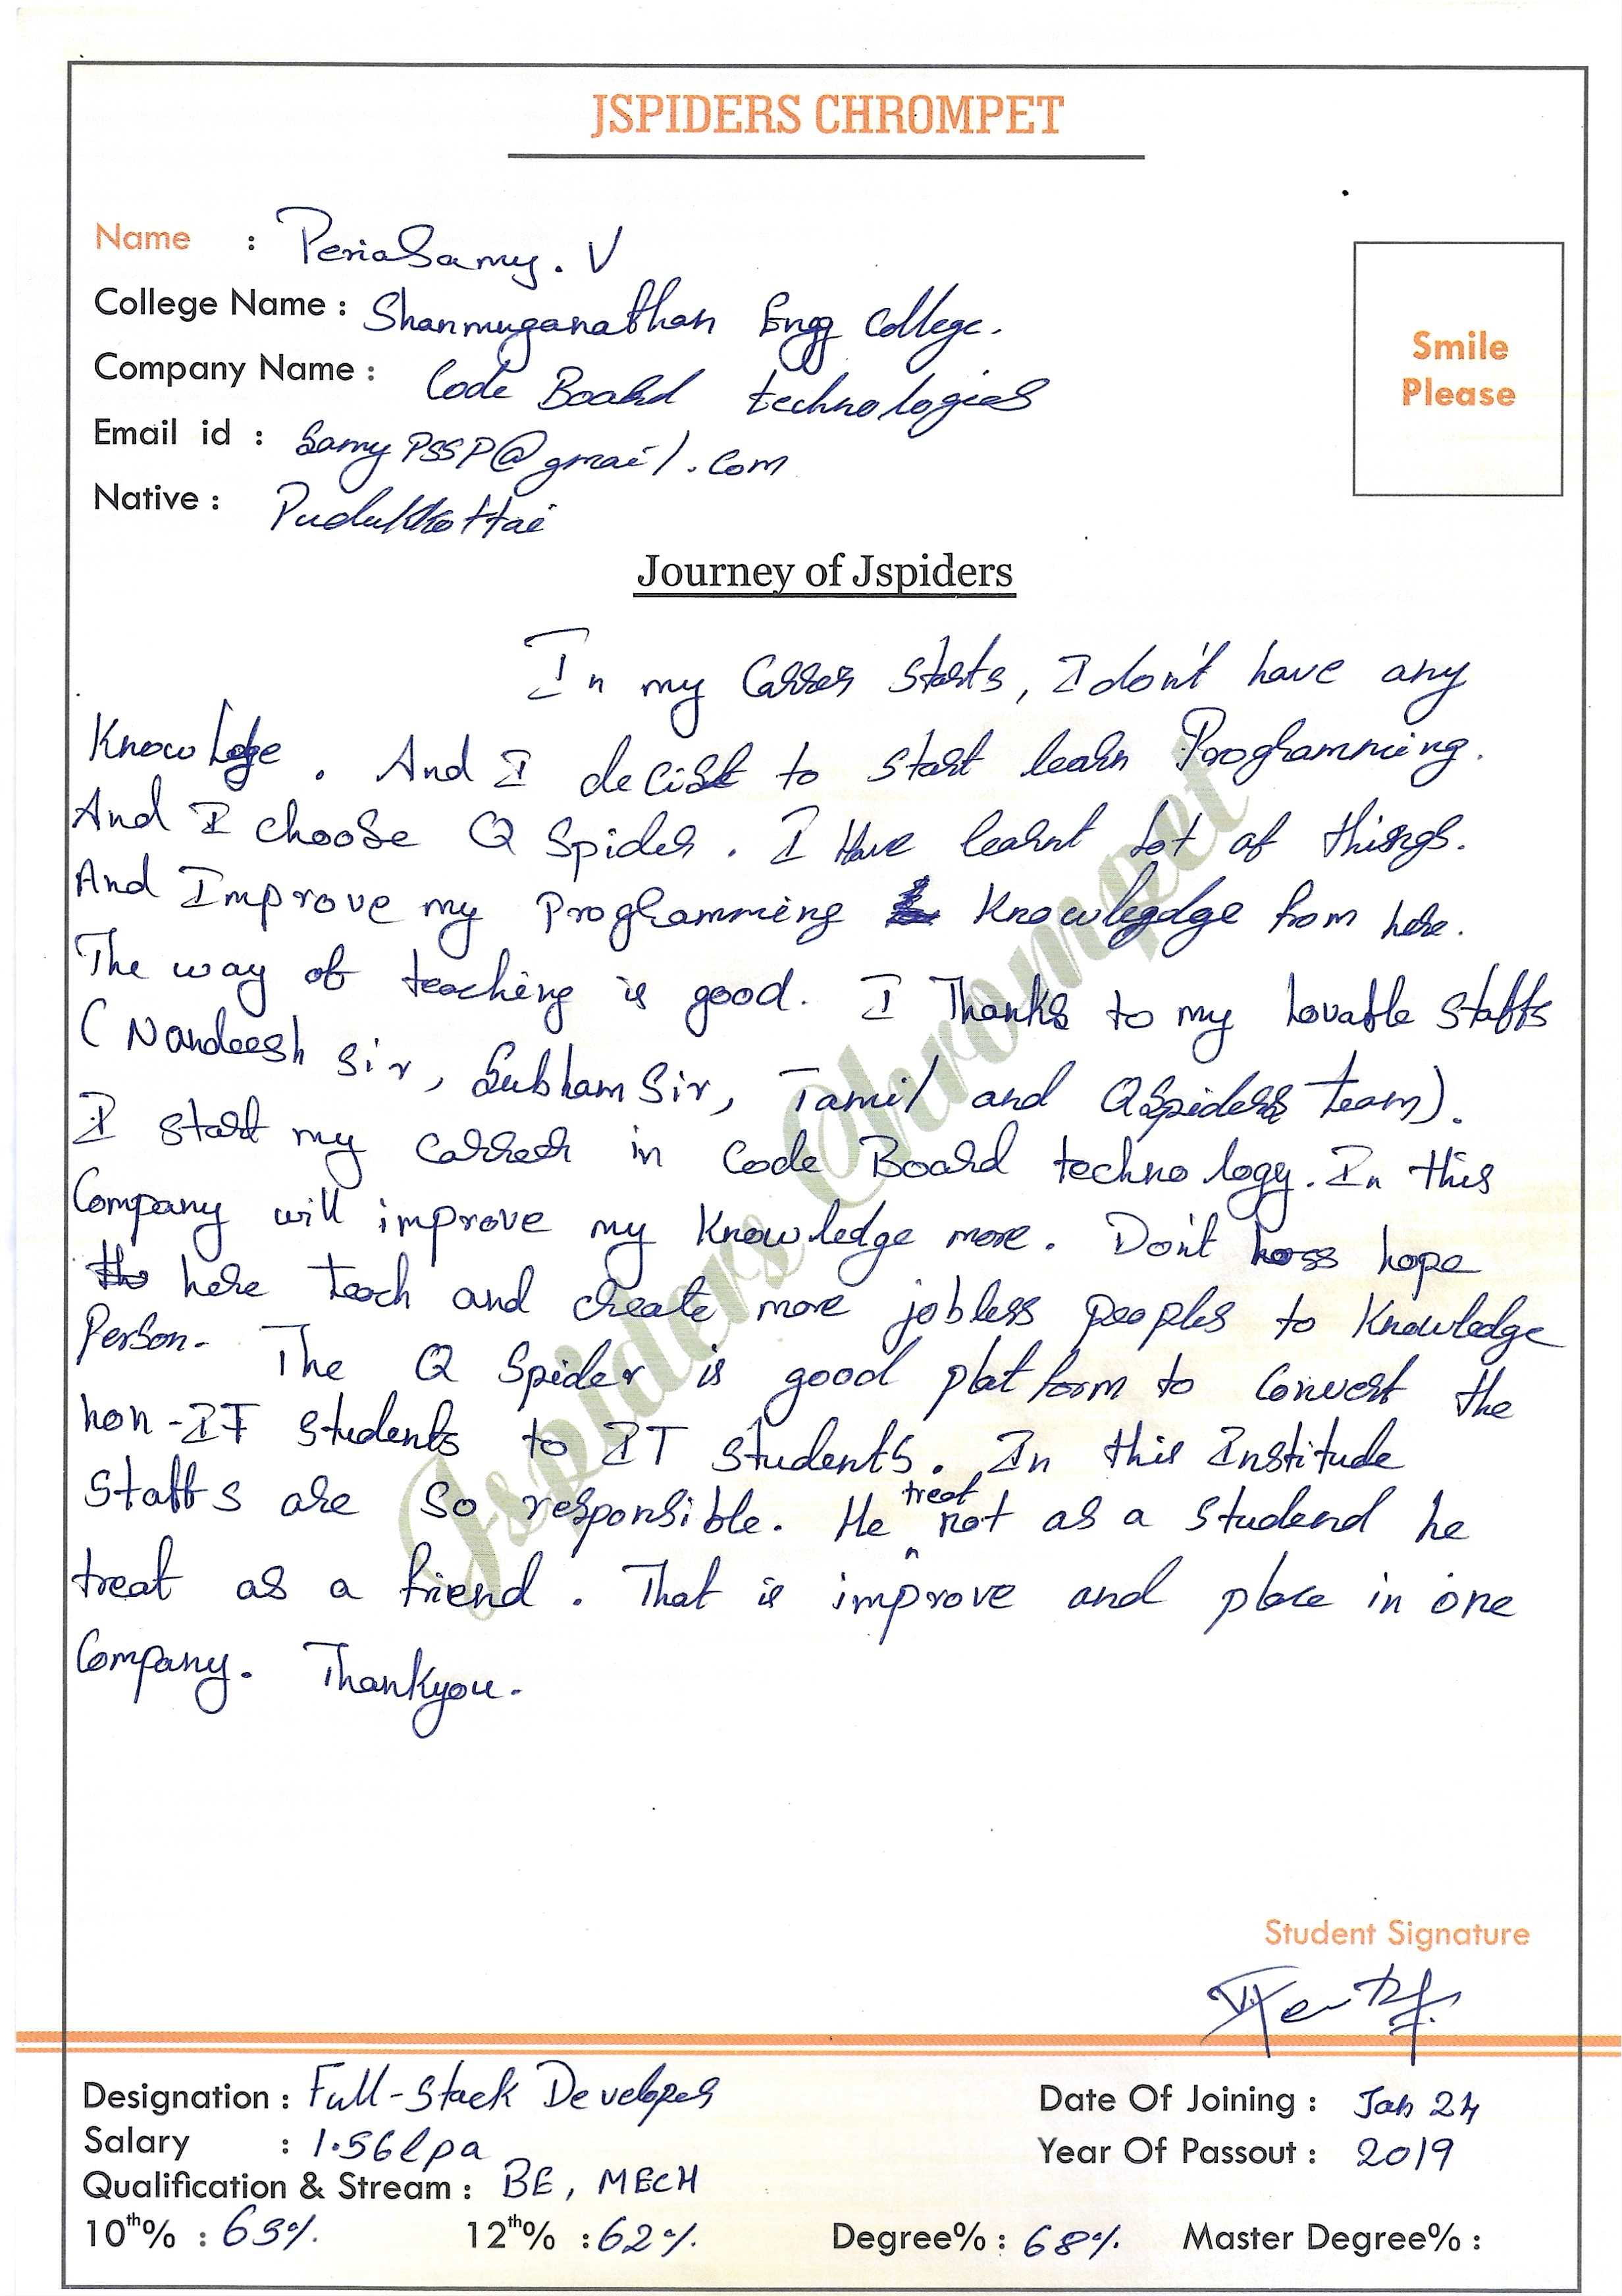 JSPIDERS CHROMPET
Name : PeriaSamy. V
College Name : Shanmuganathan Engg College.
Company Name : Code Board technologies
Email id : SamyPSSP@gmail.com
Native : Pudukkottai
Smile
Please
Journey of Jspiders
In my Carrer starts, I don't have any
Knowledge. And I decide to start learn Programming.
And I choose Q Spider. I Have learnt Lot of things.
And Improve my Programming Knowlegdge from here.
The way of teaching is good. I Thanks to my Lovable staffs
(Nandeesh Sir, Subham Sir, Tamil and QSpiders team).
I start my carrear in Code Board technology. In this
Company will improve my Knowledge more. Don't loss hope
here teach and create more jobless peoples to Knowledge
Person. The Q Spider is good plat form to Convert the
non-IT students to IT students. In this Institude
Staffs are so responsible. He treat not as a studend he
treat as a friend. That is improve and place in one
Company. Thankyou.
Jspiders Chrompet
Student Signature
Designation : Full-Stack Developer
Date Of Joining : Jan 24
Salary : 1.56lpa
Year Of Passout : 2019
Qualification & Stream : BE, MECH
10th% : 69% 12th% : 62% Degree% : 68% Master Degree% :